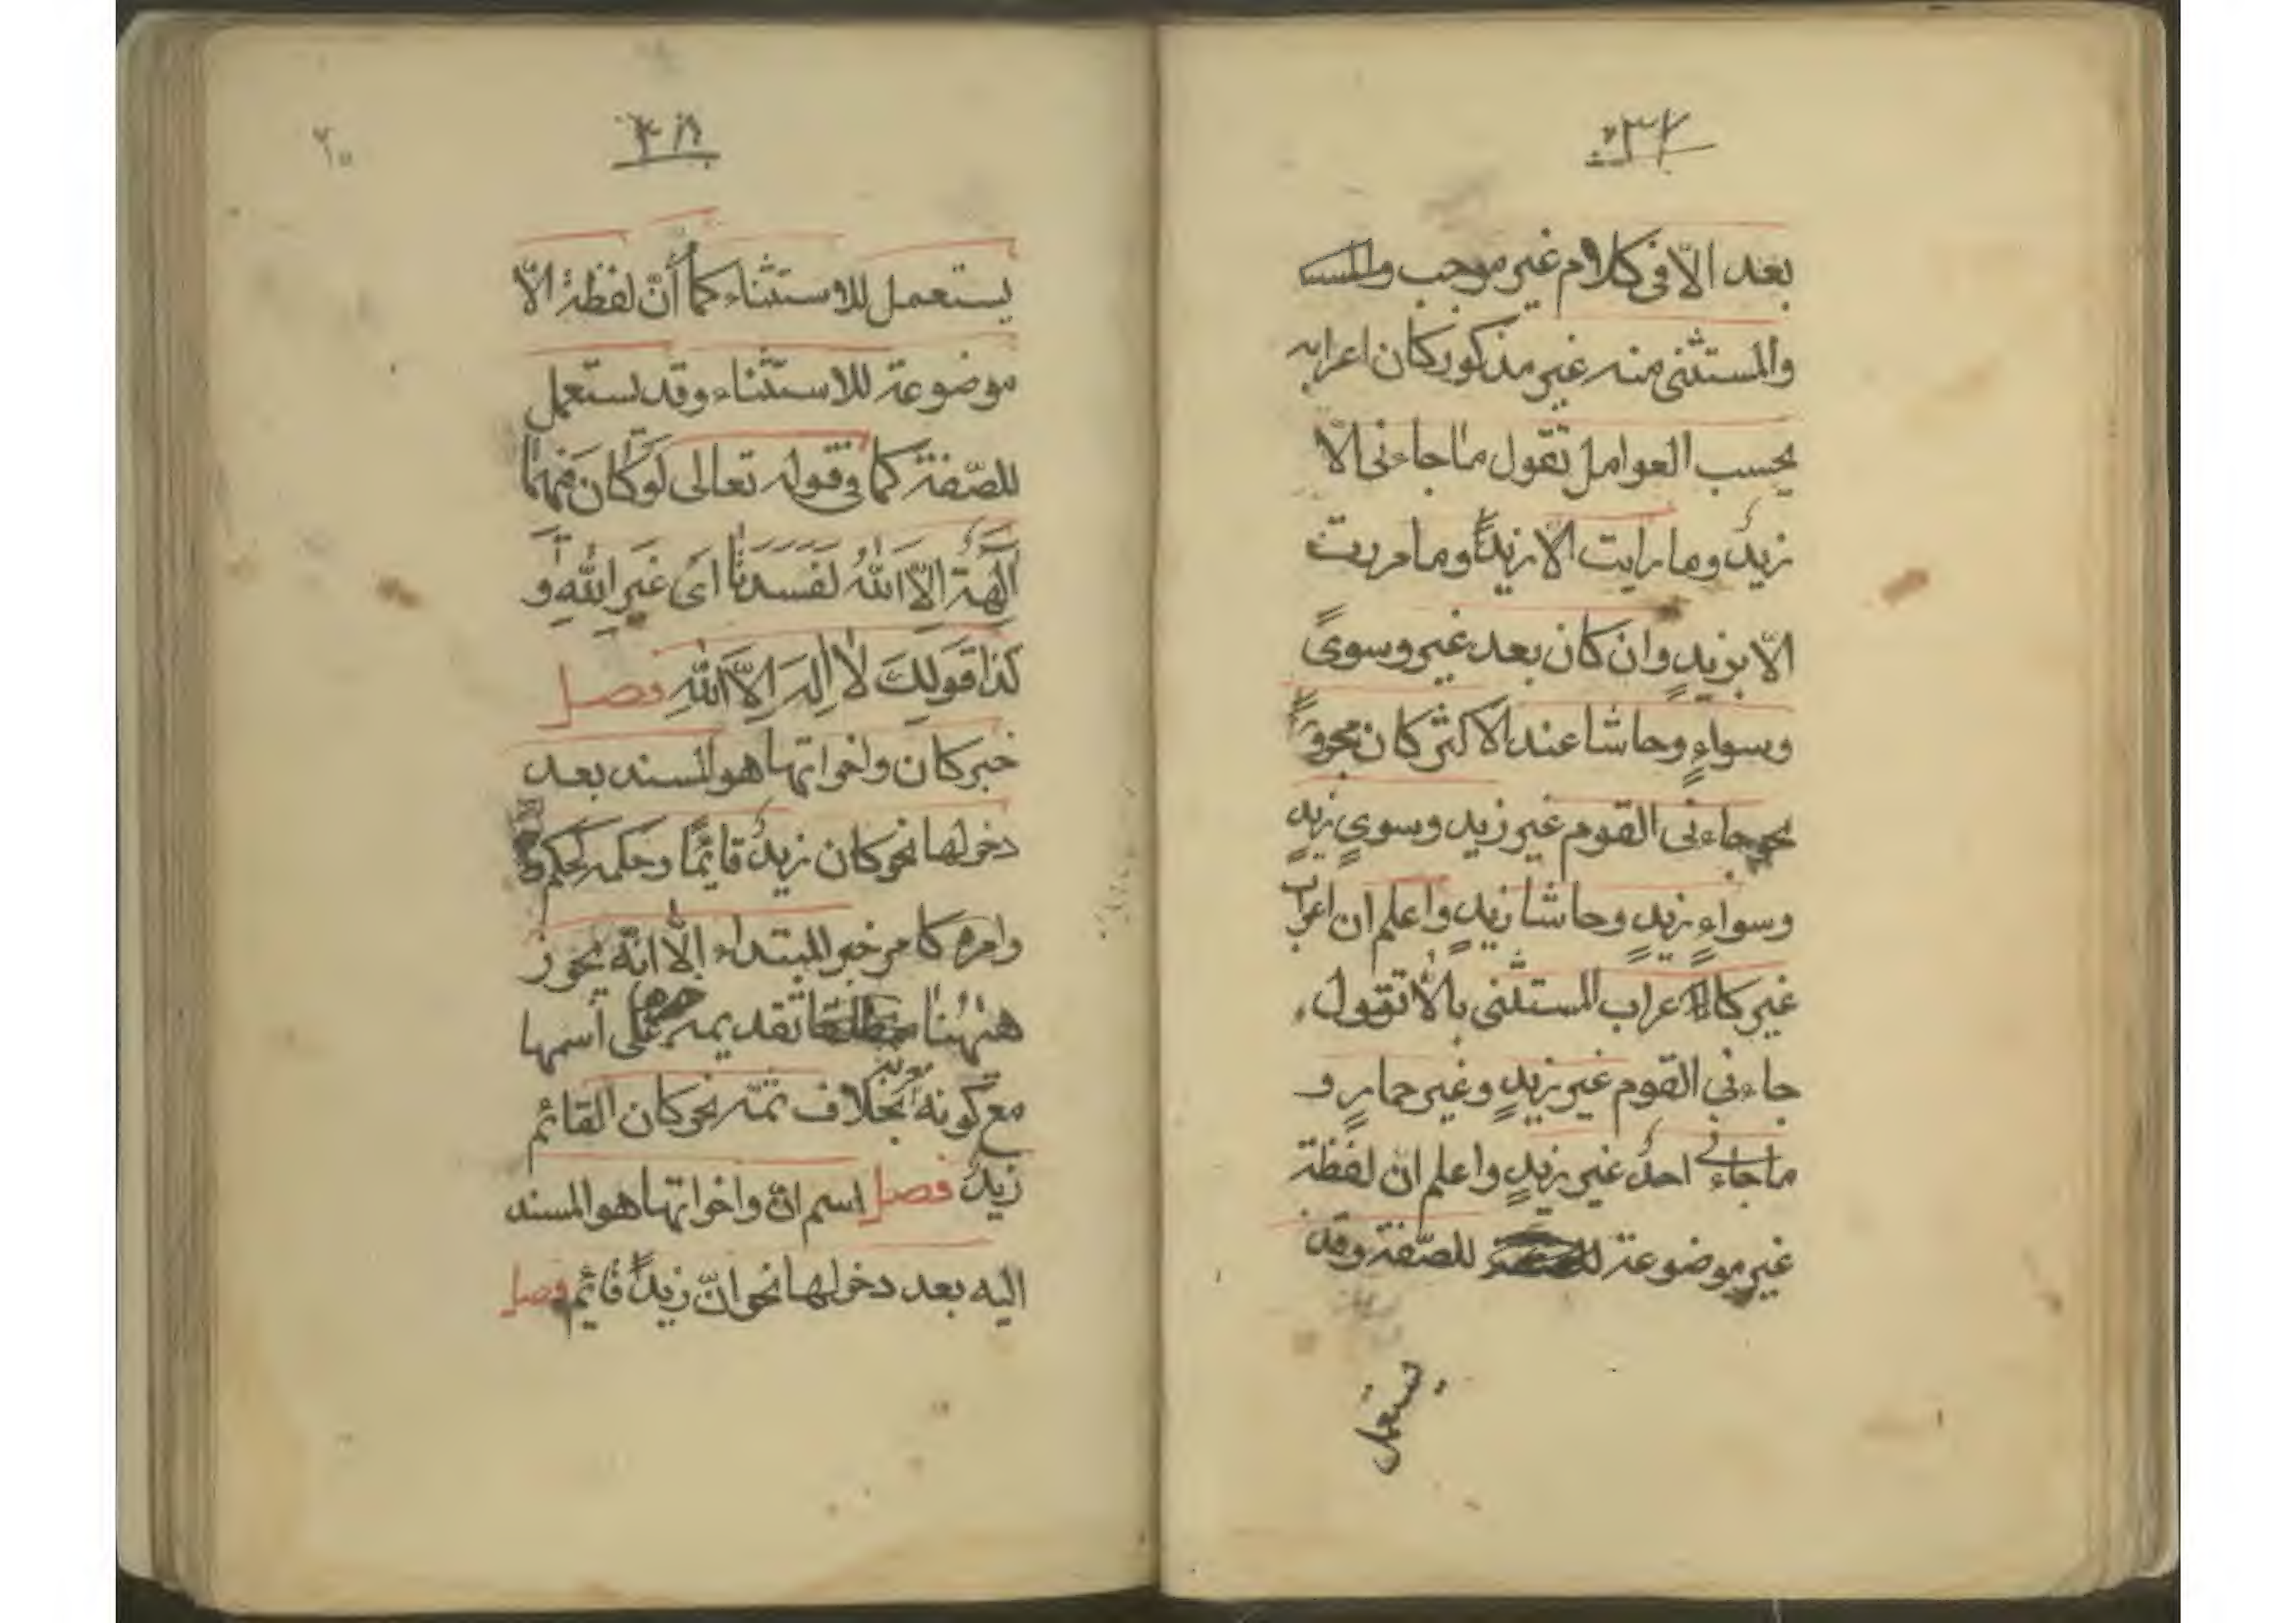 ٣٧
بعد الّا فى كلام غير موجب
والمستثنى منه غير مذكور كان اعرابه
بحسب العوامل تقول ما جاءنى الّا
زيدٌ وما رايت الا زيدًا وما مررت
الّا بزيدٍ وان كان بعد غير وسوىً
وسواءٍ وحاشا عند الاكثر كان مجرورًا
نحو جاءنى القوم غير زيدٍ وسوي زيدٍ
وسواءٍ زيدٍ وحاشا زيدٍ واعلم ان اعراب
غير كاعراب المستثنى بالّا تقول
جاءنى القوم غير زيدٍ وغير حمارٍ و
ما جاءنى احدٌ غير زيدٍ واعلم انّ لفظة
غير موضوعة للصّفة وقد
يستعمل
يستعمل للاستثناء كما أنّ لفظة الّا
موضوعة للاستثناء وقد يستعمل
للصّفة كما فى قوله تعالى لَوْ كَانَ فِيهِمَا
آلِهَةٌ اِلَّا اللهُ لَفَسَدَتَا اى غَيرِ اللهِ و
كذا قولك لا اله الّا الله فصل
خبر كان واخواتها هو المسند بعد
دخولها نحو كان زيدٌ قائمًا وحكمه كحكم
وامره كامر خبر المبتداء الّا انّه يجوز
ههنا تقديمه على أسمها
مع كونه بخلاف ثمّه نحو كان القائم
زيدٌ فصل اسم انّ واخواتها هو المسند
اليه بعد دخولها نحو انّ زيدًا قائم فصل